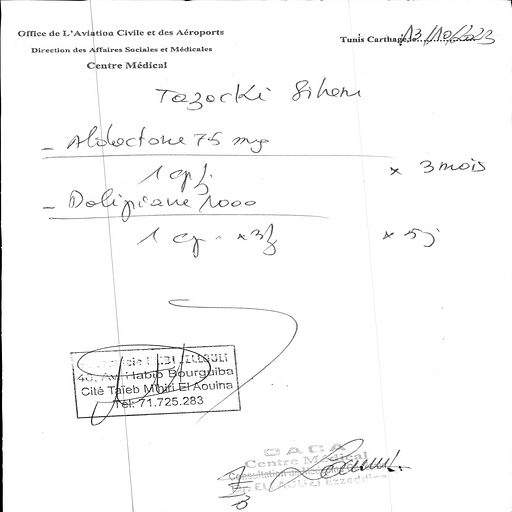 Office de L'Aviation Civile et des Aéroports
Direction des Affaires Sociales et Médicales
Centre Médical
Tunis Carthage le 13/10/2023
Tazarki Sihem
- Aldactone 75 mg
1 cp/j × 3 mois
- Doliprane 1000
1 cp × 3/j × 5j
Av. Habib Bourguiba
Cité Taïeb Mhiri El Aouina
Tél: 71.725.283
OACA
Centre Médical
Consultation
Dr. Ezzeddine